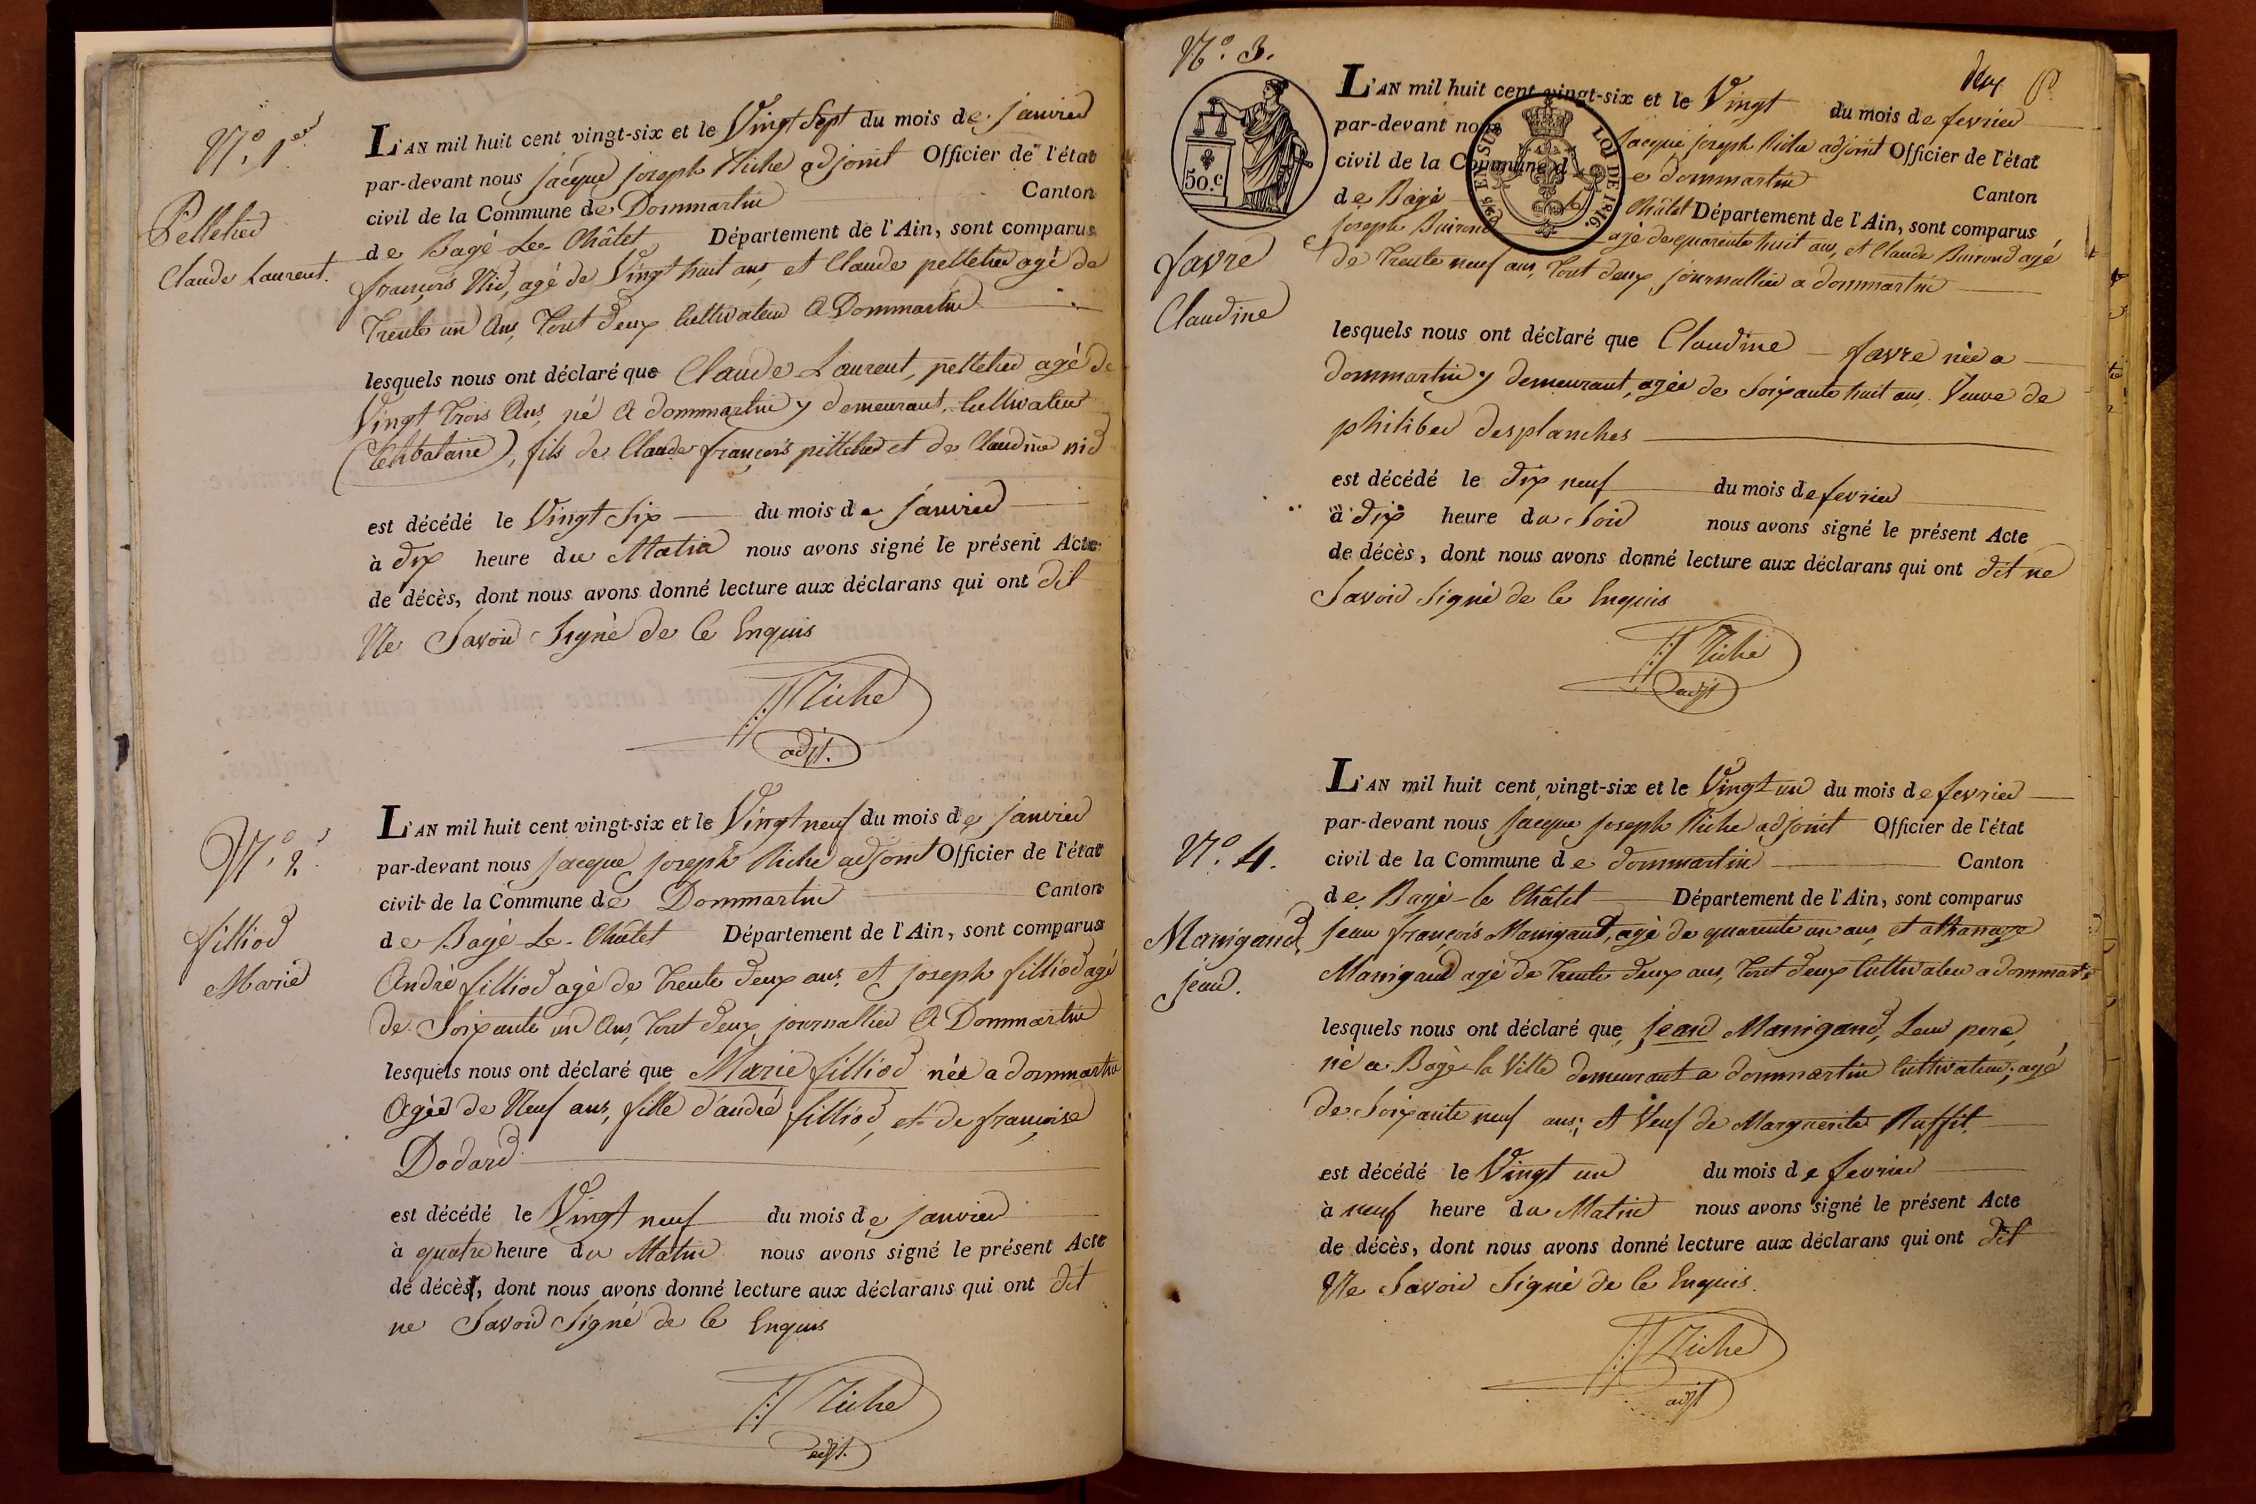 N.° 1er
Pelletier
Claude Laurent.
L'AN mil huit cent vingt-six et le Vingt Sept du mois de janvier
par-devant nous jacque joseph Riche adjoint Officier de l'état
civil de la Commune de Dommartin Canton
de Bagé Le Châtel Département de l'Ain, sont comparus
françois Nid, agé de Vingt huit ans, et Claude pelletier agé de
Trente un Ans, Tout deux Cultivateur A Dommartin
lesquels nous ont déclaré que Claude Laurent, pelletier agé de
Vingt Trois Ans, né A dommartin y demeurant, Cultivateur
(Celibataire), fils de Claude françois pelletier et de Claudine nid
est décédé le Vingt Six du mois de janvier
à dix heure du Matin nous avons signé le présent Acte
de décès, dont nous avons donné lecture aux déclarans qui ont dit
Ne Savoir Signé de Ce Enquis
Riche
adjt.
N.° 2.
filliod
Marie
L'AN mil huit cent vingt-six et le Vingt neuf du mois de janvier
par-devant nous jacque joseph Riche adjoint Officier de l'état
civil de la Commune de Dommartin Canton
de Bagé Le Châtel Département de l'Ain, sont comparus
André filliod agé de Trente deux ans, et joseph filliod agé
de Soixante un Ans, Tout deux journallier A Dommartin
lesquels nous ont déclaré que Marie filliod née a dommartin
Agée de Neuf ans, fille d'andré filliod, et de françoise
Dodard
est décédé le Vingt neuf du mois de janvier
à quatre heure du Matin nous avons signé le présent Acte
de décès, dont nous avons donné lecture aux déclarans qui ont dit
ne Savoir Signé de Ce Enquis
Riche
adjt.
N.° 3.
deux
50.c
EN SUS LOI DE 1816.
favre
Claudine
L'AN mil huit cent vingt-six et le Vingt du mois de fevrier
par-devant nous jacque joseph Riche adjoint Officier de l'état
civil de la Commune de dommartin Canton
de Bagé Châtel Département de l'Ain, sont comparus
joseph Buirond agé de quarente huit ans, et Claude Buirond agé
de Trente neuf ans, Tout deux journallier a dommartin
lesquels nous ont déclaré que Claudine favre née a
dommartin y demeurant, agée de Soixante huit ans, Veuve de
philiber desplanches
est décédé le dix neuf du mois de fevrier
à dix heure du Soir nous avons signé le présent Acte
de décès, dont nous avons donné lecture aux déclarans qui ont dit ne
Savoir Signé de Ce Enquis
Riche
adjt
N.° 4.
Manigand
jean.
L'AN mil huit cent vingt-six et le Vingt un du mois de fevrier
par-devant nous jacque joseph Riche adjoint Officier de l'état
civil de la Commune de dommartin Canton
de Bagé-le Châtel Département de l'Ain, sont comparus
jean françois Manigand, agé de quarente un ans, et athanaze
Manigand agé de Trente deux ans, Tout deux Cultivateur a dommartin
lesquels nous ont déclaré que jean Manigand, Leur pere,
né a Bagé-la Ville demeurant a dommartin Cultivateur, agé
de Soixante neuf ans; et Veuf de Marguerite Ruffit
est décédé le Vingt un du mois de fevrier
à neuf heure du Matin nous avons signé le présent Acte
de décès, dont nous avons donné lecture aux déclarans qui ont dit
Ne Savoir Signé de Ce Enquis.
Riche
adjt